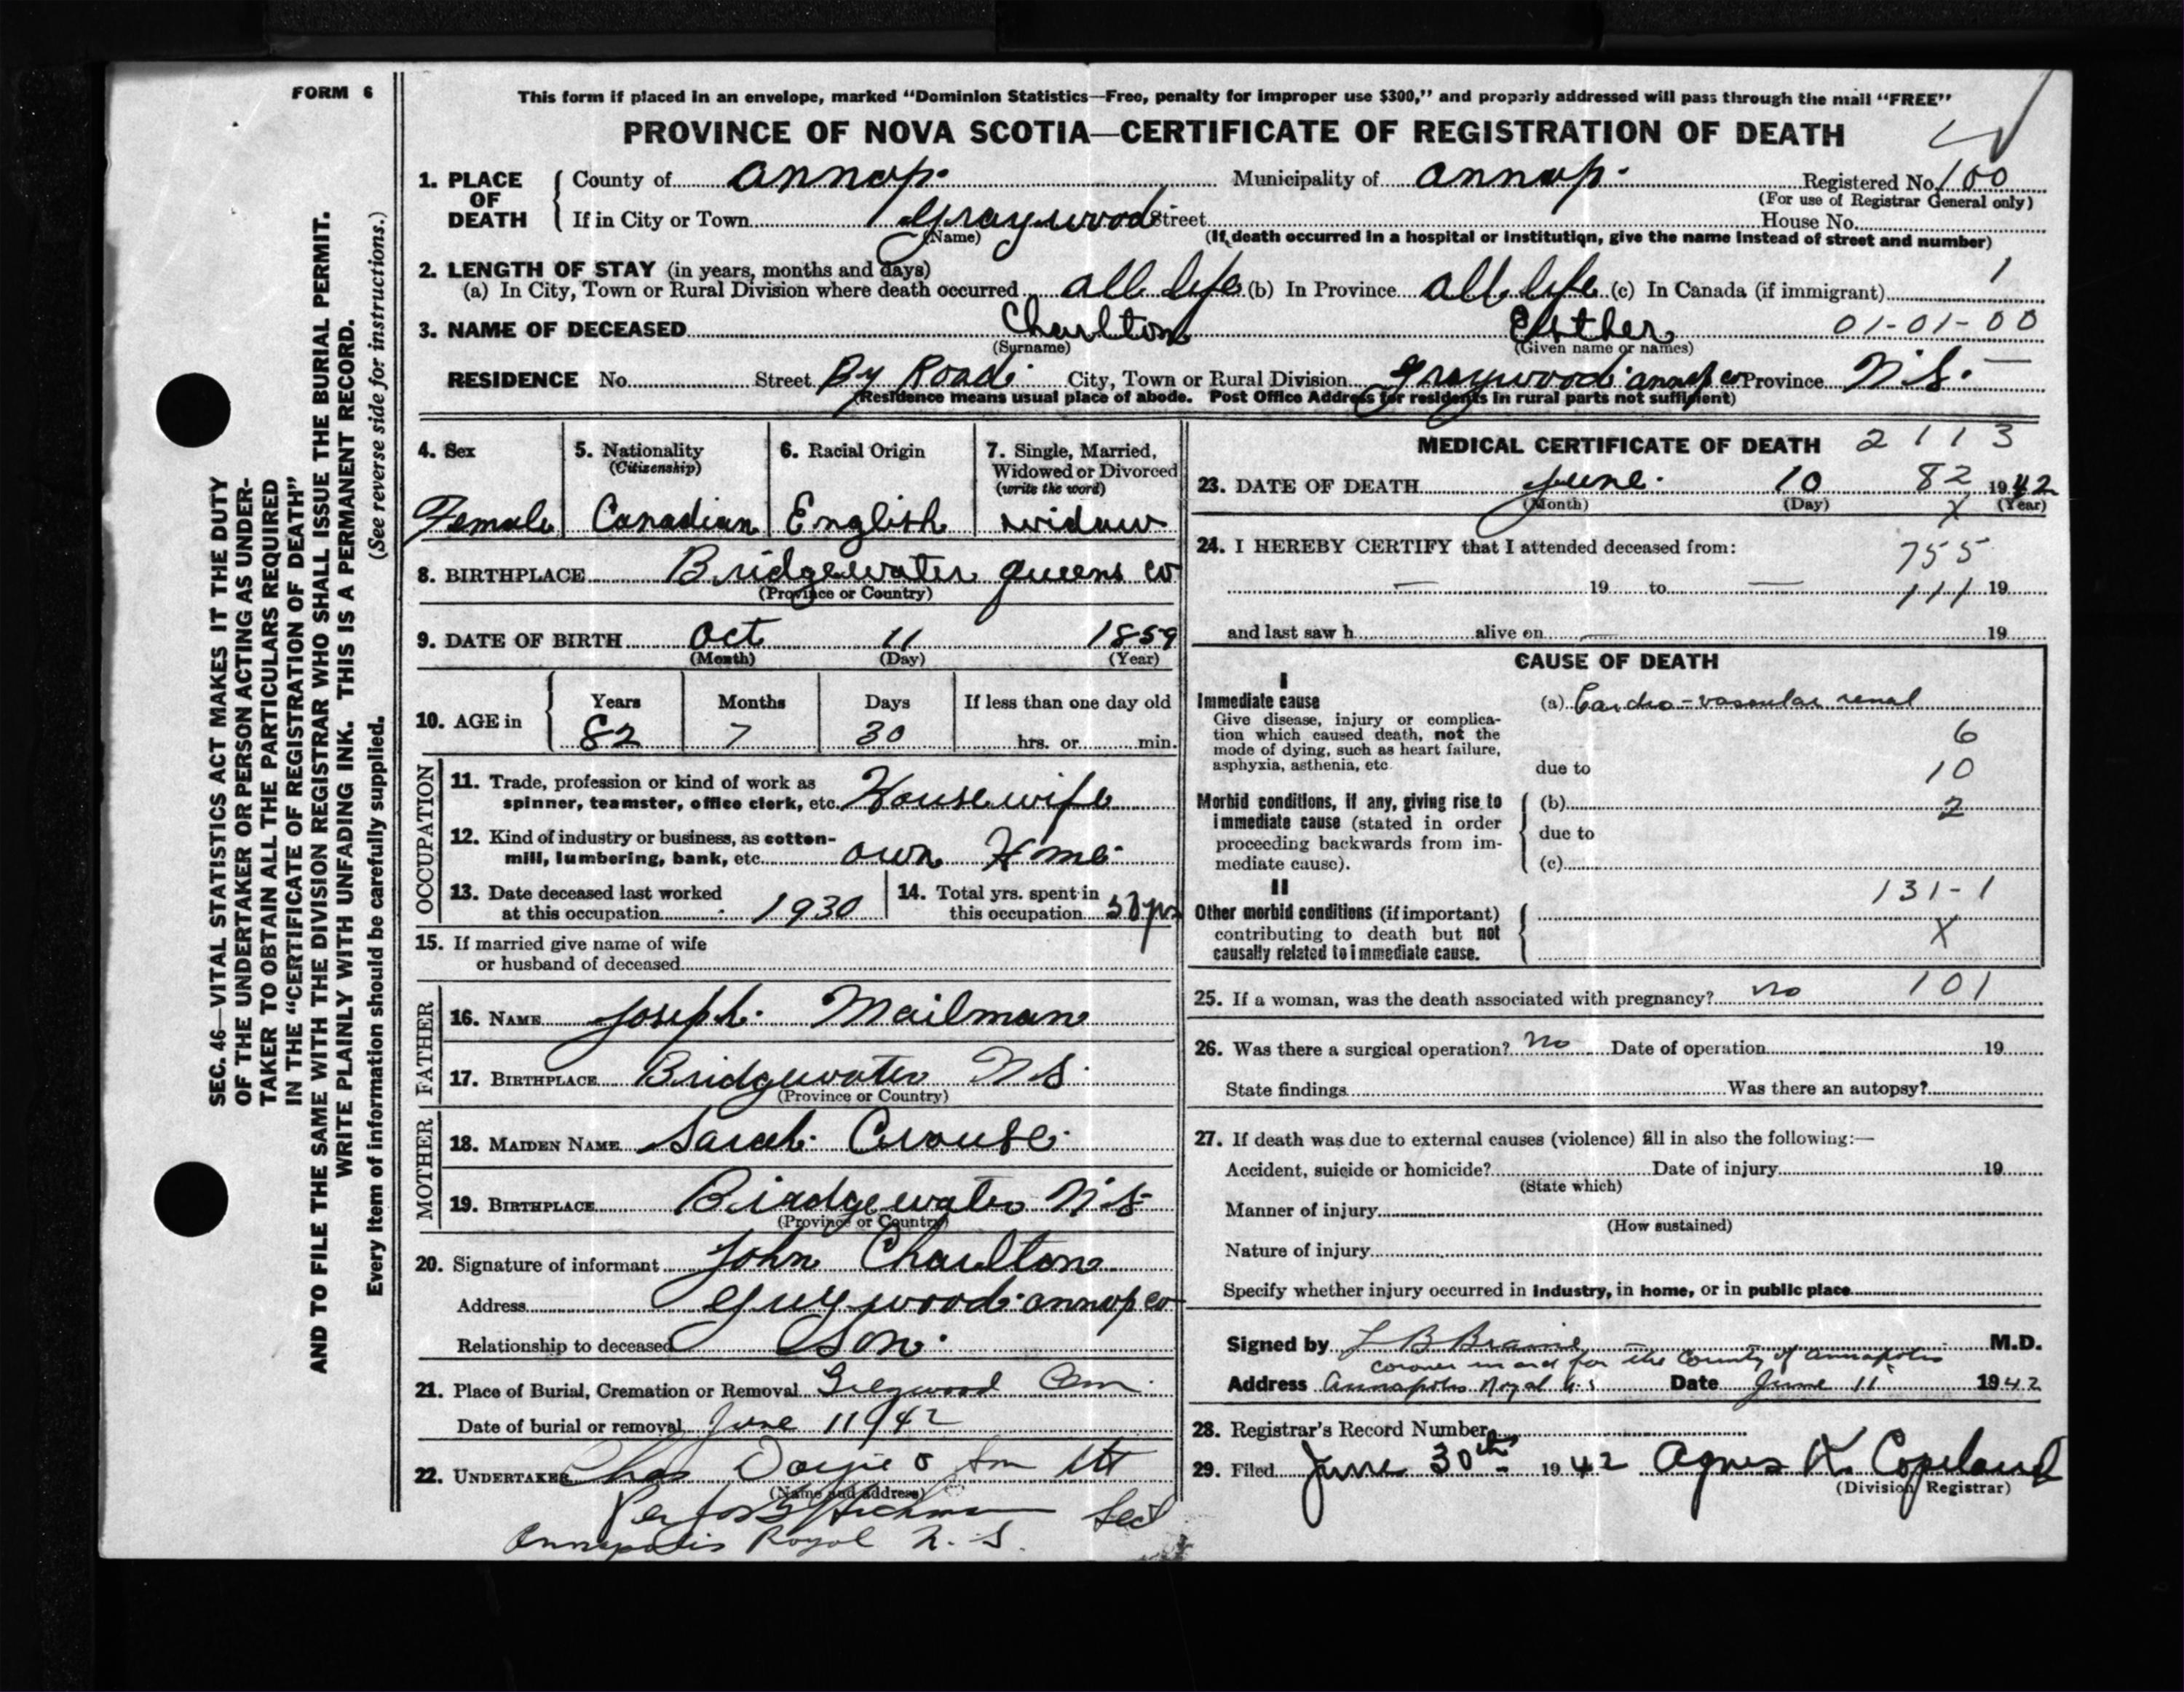 FORM 6
This form if placed in an envelope, marked "Dominion Statistics—Free, penalty for improper use $300," and properly addressed will pass through the mail "FREE"
PROVINCE OF NOVA SCOTIA—CERTIFICATE OF REGISTRATION OF DEATH
1. PLACE OF DEATH County of Annap. Municipality of Annap. Registered No. 100
(For use of Registrar General only)
If in City or Town Graywood Street House No.
(Name) (If death occurred in a hospital or institution, give the name instead of street and number)
2. LENGTH OF STAY (in years, months and days)
(a) In City, Town or Rural Division where death occurred all life (b) In Province all life (c) In Canada (if immigrant) 1
3. NAME OF DECEASED Charlton Esther 01-01-00
(Surname) (Given name or names)
RESIDENCE No. Street By Road City, Town or Rural Division Graywood annap co Province N.S. —
(Residence means usual place of abode. Post Office Address for residents in rural parts not sufficient)
4. Sex 5. Nationality (Citizenship) 6. Racial Origin 7. Single, Married, Widowed or Divorced (write the word)
Female Canadian English widow
8. BIRTHPLACE Bridgewater queens co
(Province or Country)
9. DATE OF BIRTH Oct 11 1859
(Month) (Day) (Year)
10. AGE in Years Months Days If less than one day old
82 7 30 hrs. or min.
OCCUPATION
11. Trade, profession or kind of work as
spinner, teamster, office clerk, etc. Housewife
12. Kind of industry or business, as cotton-
mill, lumbering, bank, etc. own Home
13. Date deceased last worked
at this occupation 1930
14. Total yrs. spent in
this occupation 50 yrs
15. If married give name of wife
or husband of deceased
FATHER
16. NAME Joseph Mailman
17. BIRTHPLACE Bridgewater N S
(Province or Country)
MOTHER
18. MAIDEN NAME Sarah Crouse
19. BIRTHPLACE Bridgewater N.S
(Province or Country)
20. Signature of informant John Charlton
Address Graywood annap co
Relationship to deceased Son
21. Place of Burial, Cremation or Removal Greywood Cem
Date of burial or removal June 11 1942
22. UNDERTAKER Chas & Son
(Name and address)
Per
Annapolis Royal N. S.
MEDICAL CERTIFICATE OF DEATH 2113
23. DATE OF DEATH June 10 82 1942
(Month) (Day) X (Year)
24. I HEREBY CERTIFY that I attended deceased from: 755
— 19 to — 111 19
and last saw h alive on — 19
CAUSE OF DEATH
I
Immediate cause (a) Cardio-vascular renal
Give disease, injury or complica-
tion which caused death, not the 6
mode of dying, such as heart failure,
asphyxia, asthenia, etc. due to 10
Morbid conditions, if any, giving rise to (b) 2
immediate cause (stated in order
proceeding backwards from im- due to
mediate cause). (c)
II 131-1
Other morbid conditions (if important)
contributing to death but not X
causally related to immediate cause.
25. If a woman, was the death associated with pregnancy? no 101
26. Was there a surgical operation? no Date of operation 19
State findings Was there an autopsy?
27. If death was due to external causes (violence) fill in also the following:—
Accident, suicide or homicide? Date of injury 19
(State which)
Manner of injury
(How sustained)
Nature of injury
Specify whether injury occurred in industry, in home, or in public place
Signed by L B Braine M.D.
Coroner in and for the County of Annapolis
Address Annapolis Royal N.S Date June 11 1942
28. Registrar's Record Number
29. Filed June 30th 1942 Agnes K. Copeland
(Division Registrar)
SEC. 46—VITAL STATISTICS ACT MAKES IT THE DUTY
OF THE UNDERTAKER OR PERSON ACTING AS UNDER-
TAKER TO OBTAIN ALL THE PARTICULARS REQUIRED
IN THE "CERTIFICATE OF REGISTRATION OF DEATH"
AND TO FILE THE SAME WITH THE DIVISION REGISTRAR WHO SHALL ISSUE THE BURIAL PERMIT.
WRITE PLAINLY WITH UNFADING INK. THIS IS A PERMANENT RECORD.
Every item of information should be carefully supplied. (See reverse side for instructions.)